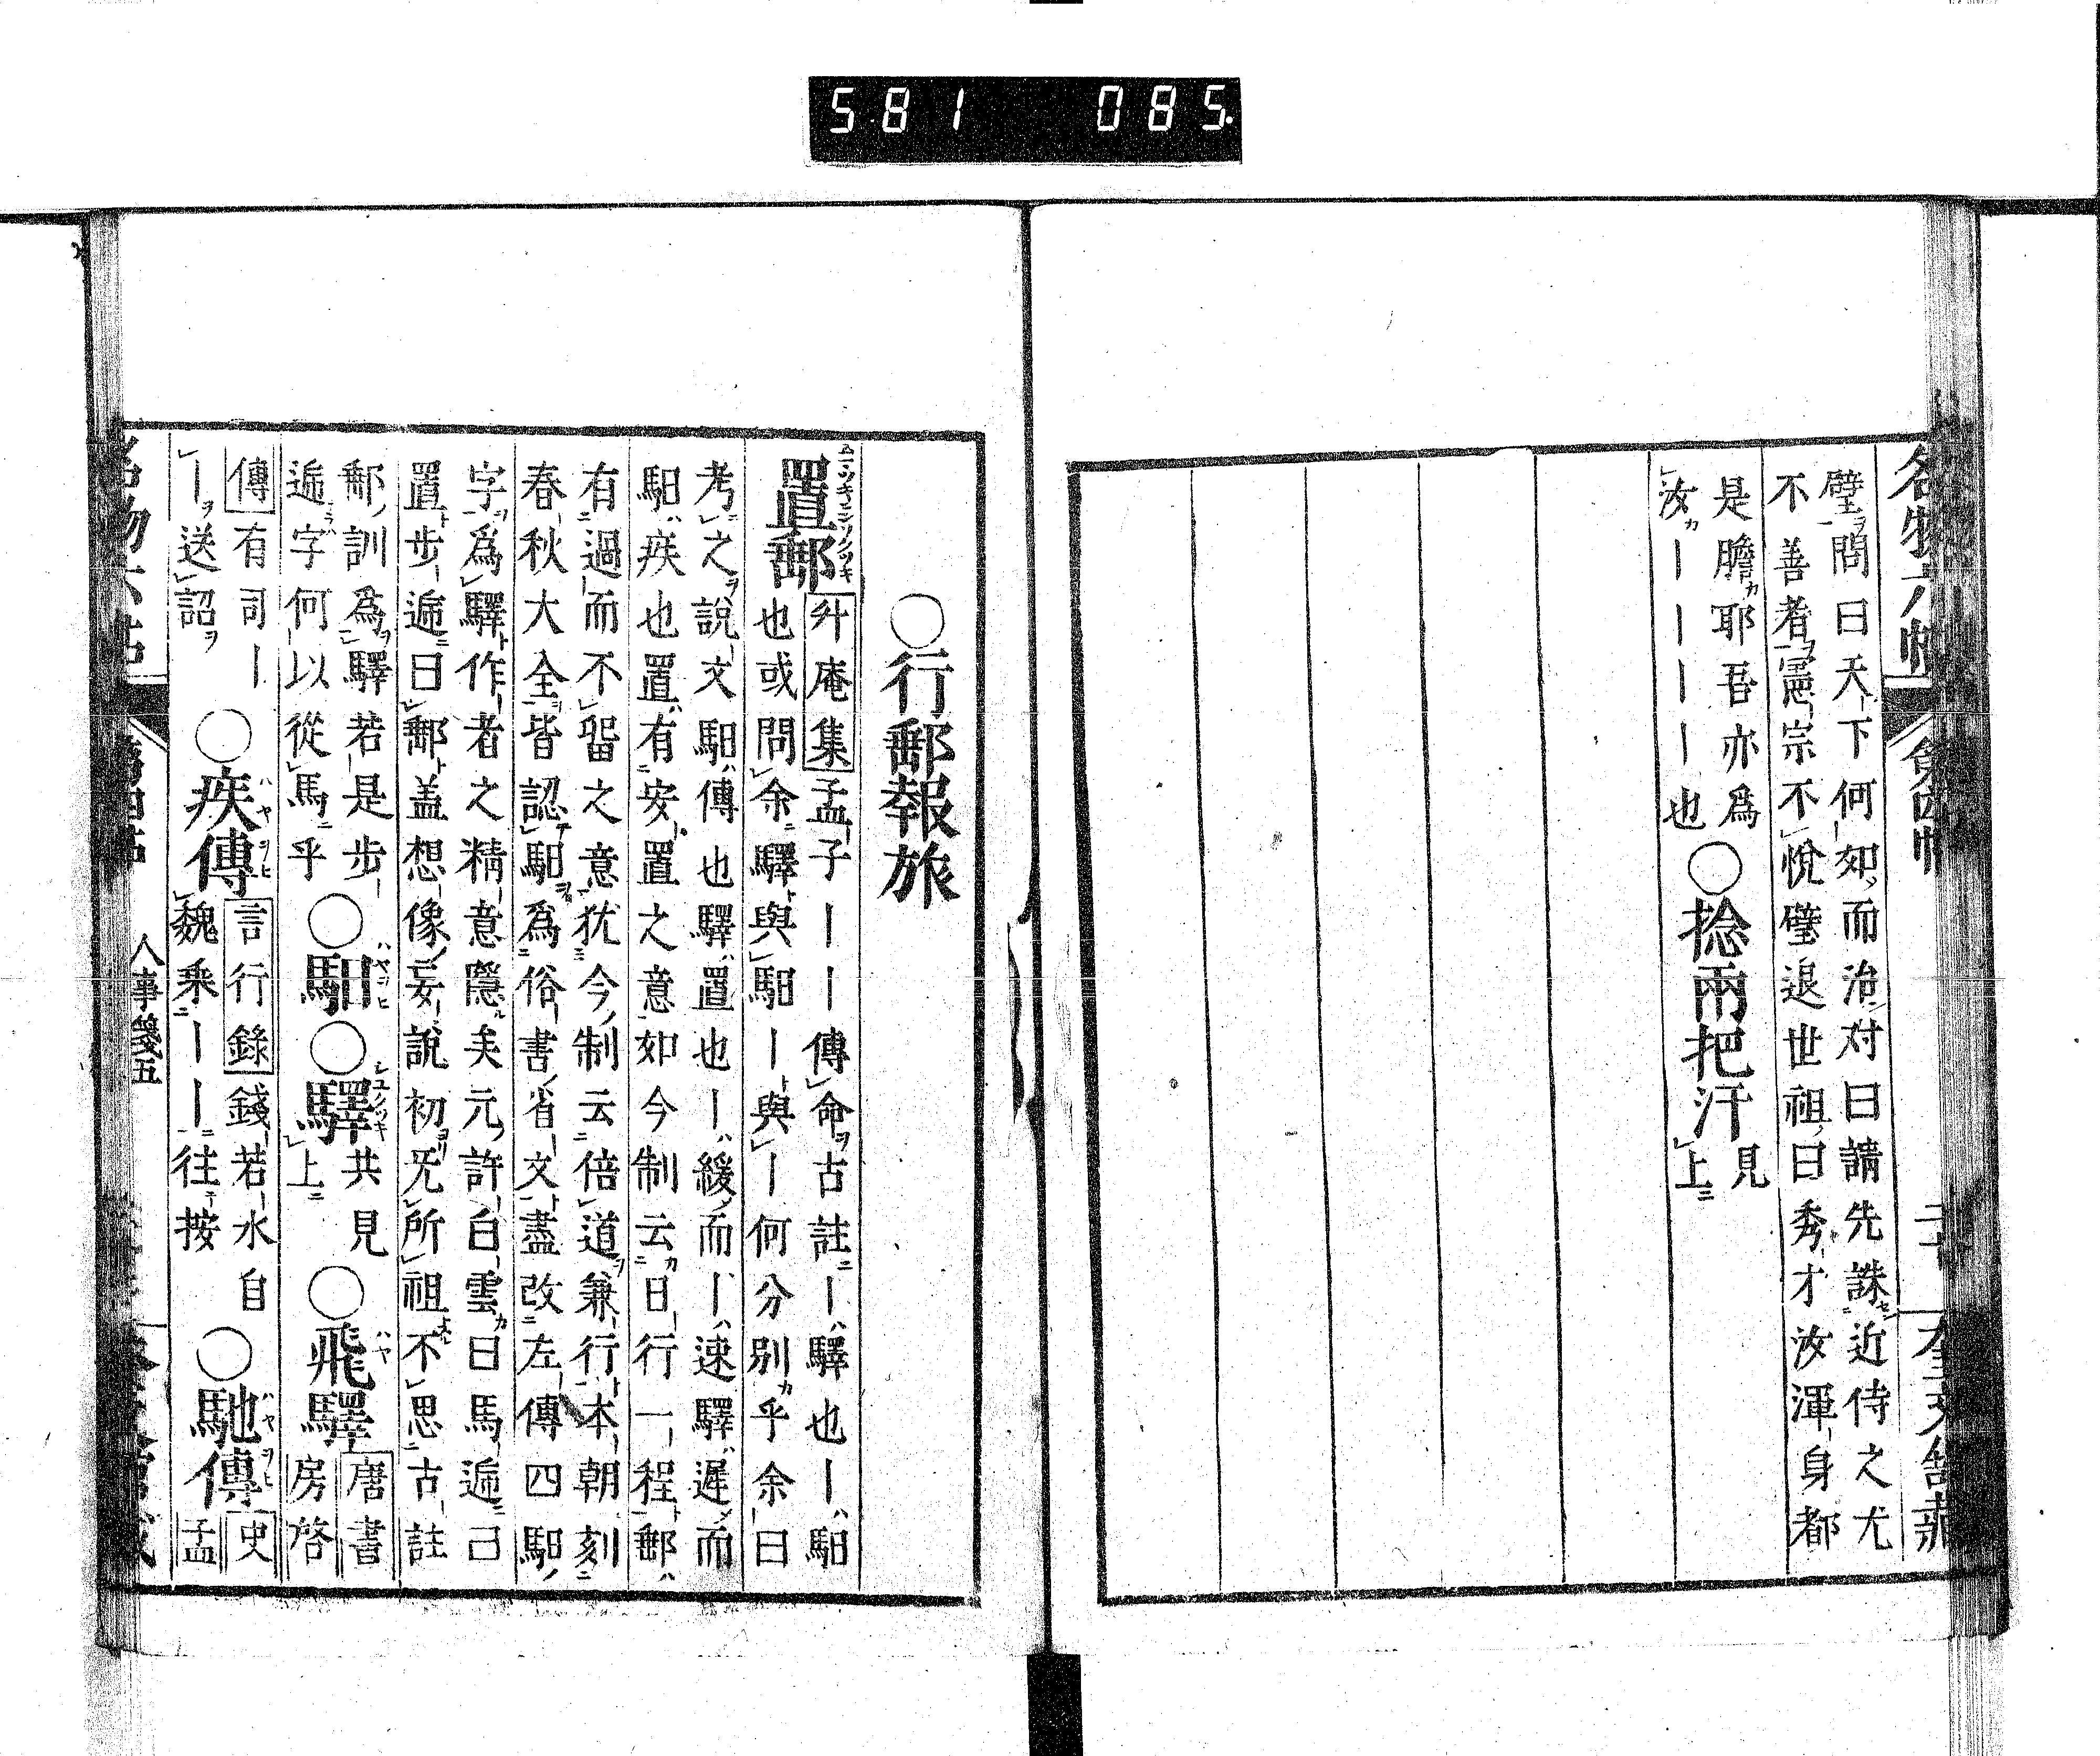 581 085.
名物六帖 第四帖 奎文館藏
璧問曰天下何如而治对曰請先誅近侍之尤
不善者憲宗不悅璧退世祖曰秀才汝渾身都
是膽耶吾亦爲
汝｜｜｜｜也○捻兩把汗見
上
○行郵報旅
置郵升庵集孟子｜｜傳命古註｜驛也｜馹
也或問余驛與馹｜與｜何分別乎余曰
考之說文馹傳也驛置也｜緩而｜速驛遲而
馹疾也置有安置之意如今制云日行一程郵
有過而不畱之意犹今制云倍道兼行本朝刻
春秋大全皆認馹爲俗書省文盡改左傳四馹
字爲驛作者之精意隱矣元許白雲曰馬遞曰
置步遞曰郵盖想像妄說初无所祖不思古註
郵訓爲驛若是步
遞字何以從馬乎○馹○驛共見
上○飛驛唐書
房啓
傳有司｜
｜送詔○疾傳言行錄錢若水自
魏乘｜｜往按○馳傳史
孟
名物六帖 第四帖 人事箋五